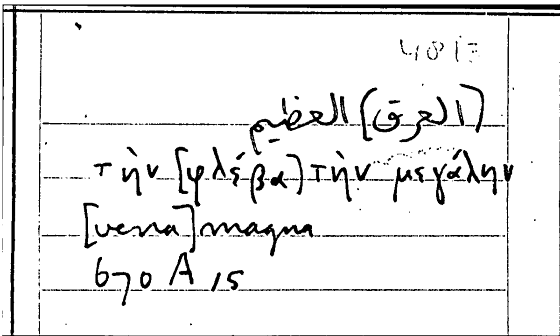 (العرق) العظيم
τὴν [φλέβα] τὴν μεγάλην
[vena] magna
670 A 15